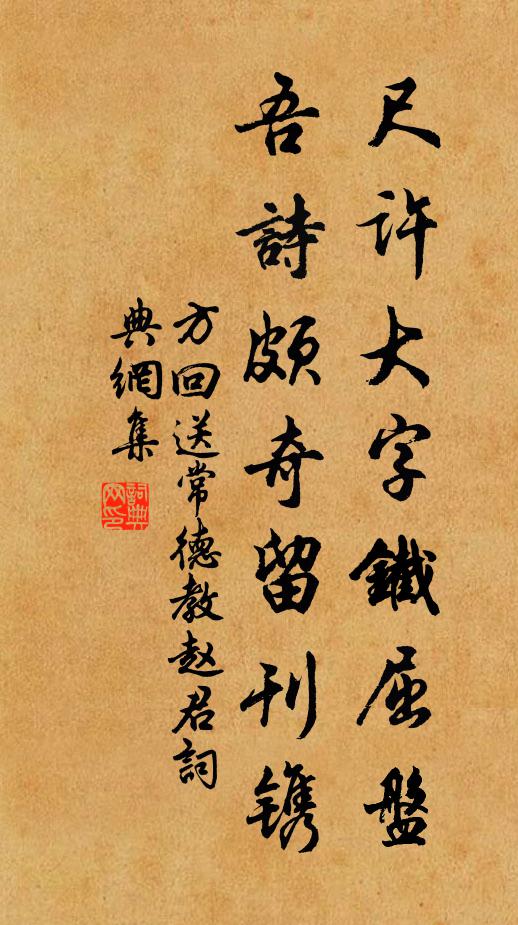 尺許大字鐵屈盤
吾詩頗奇留刊鐫
方回送常德教赵君詞
典網集
詞典
网印